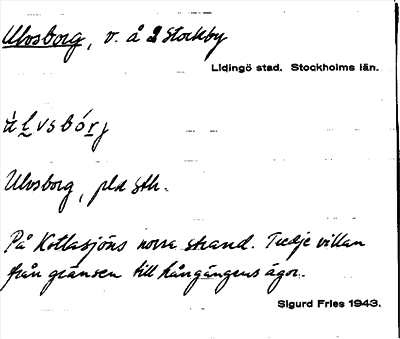 Ulvsborg, v. å 2 Stockby
Lidingö stad. Stockholms län.
ù l v s b ó r j
Ulvsborg, pld sth.
På Kottlasjöns norra strand. Tredje villan
från gränsen till hångängens ägor.
Sigurd Fries 1943.